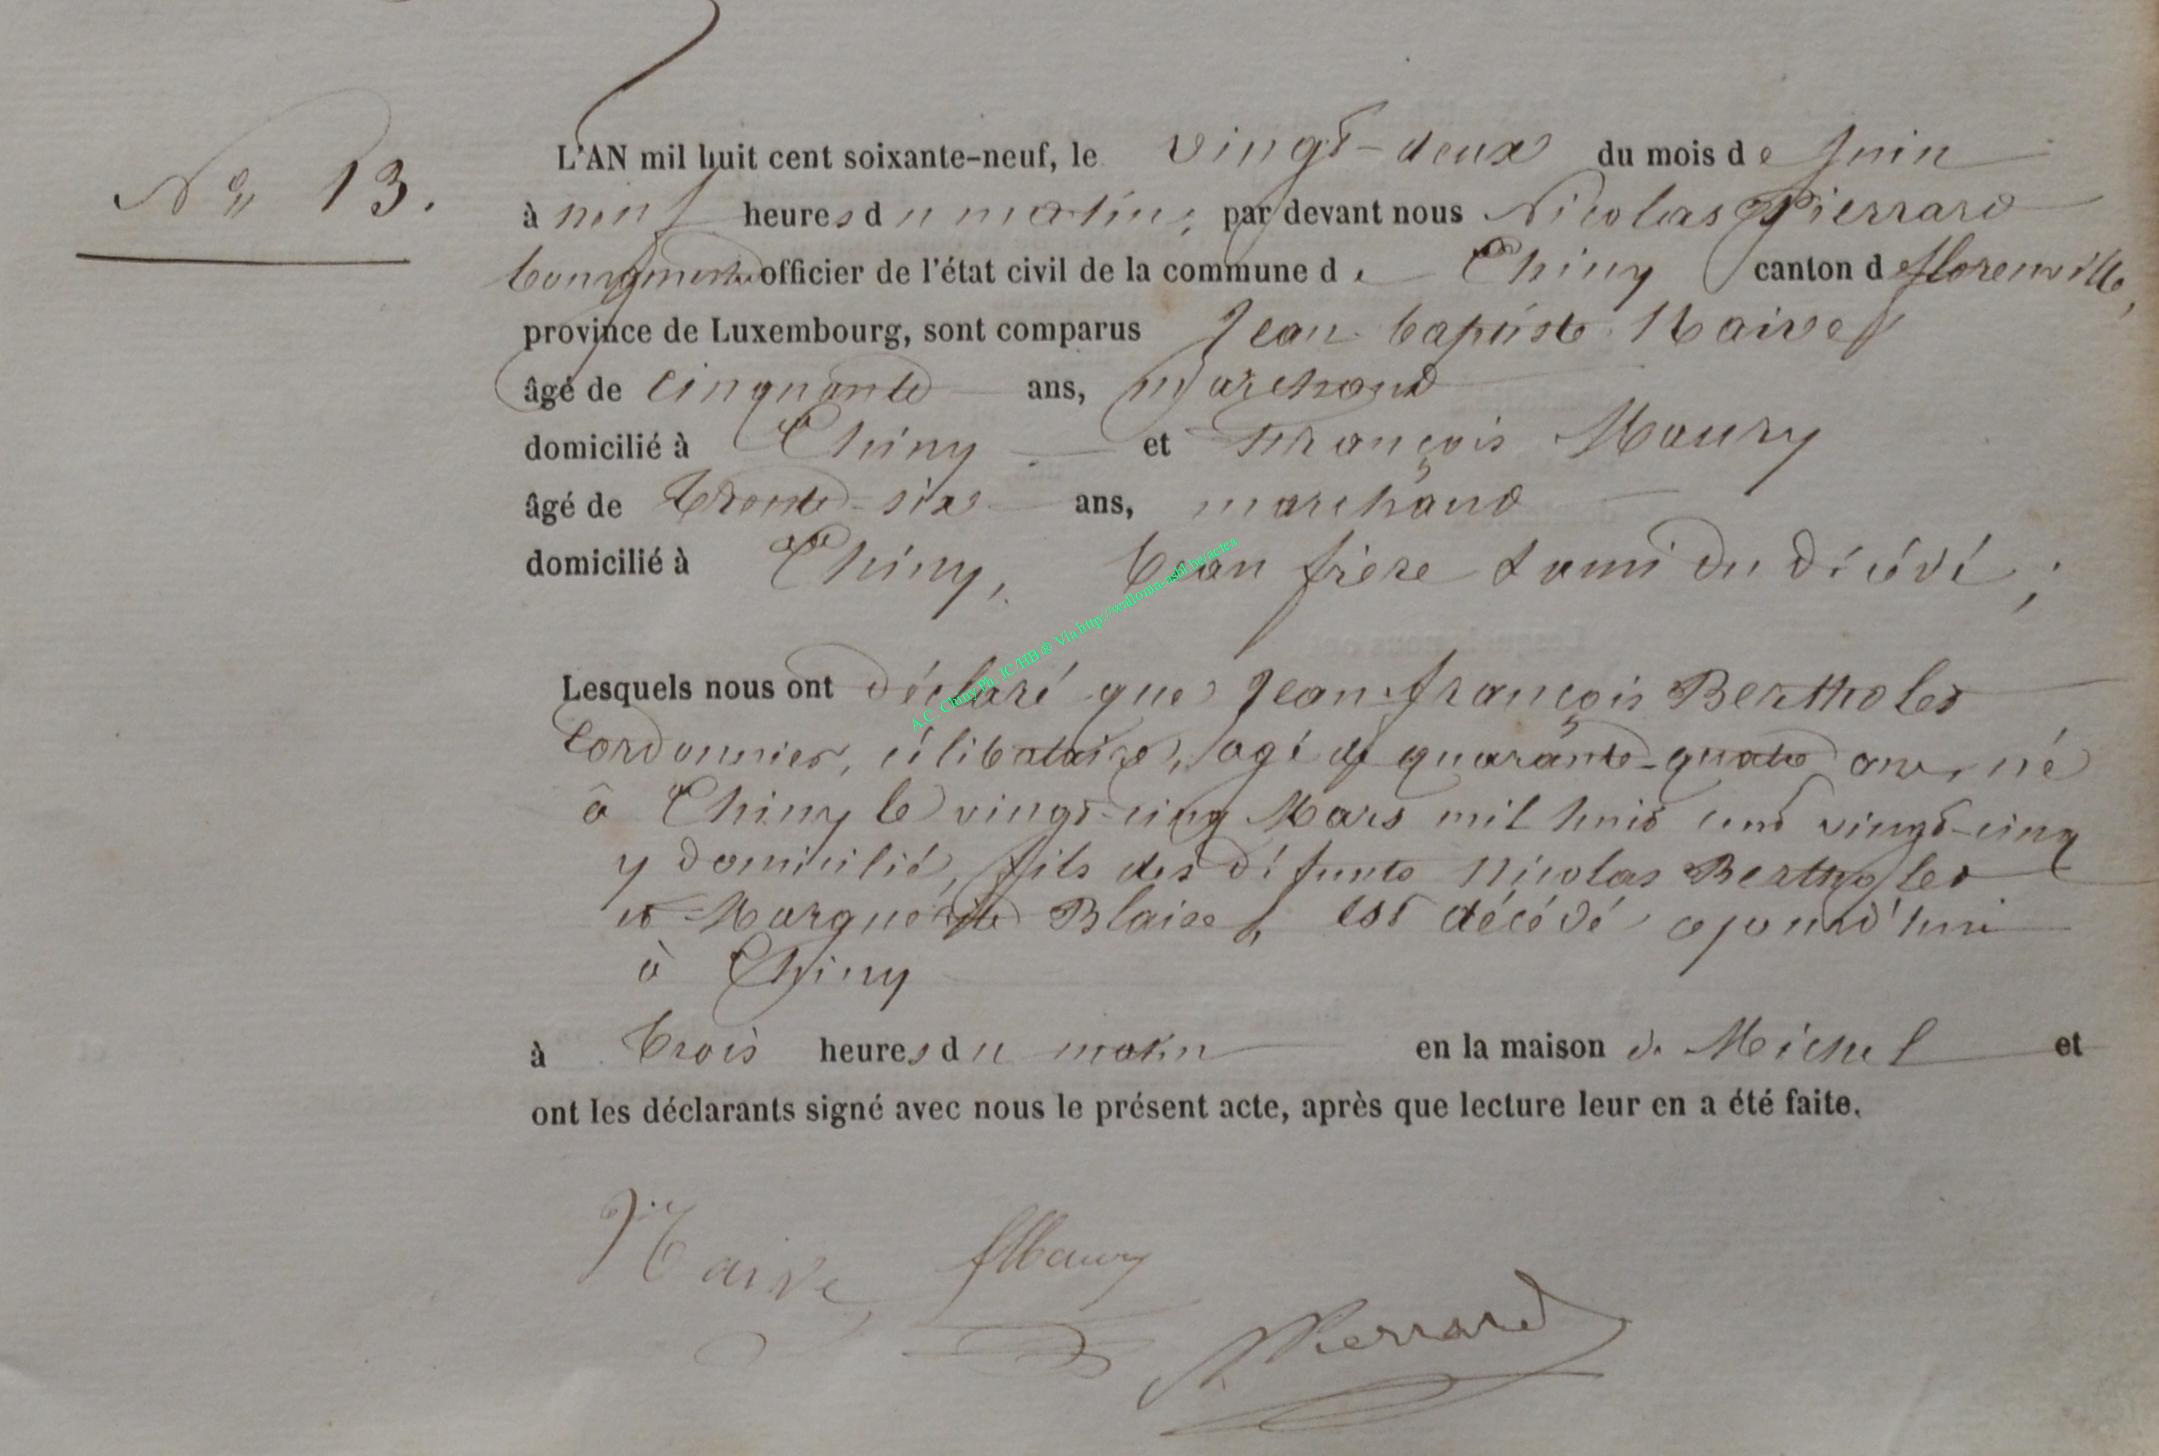 N° 13.
L'AN mil huit cent soixante-neuf, le vingt-deux du mois de Juin
à neuf heures du matin, par devant nous Nicolas Pierrard
bourgmestre officier de l'état civil de la commune de Chiny canton de florenville,
province de Luxembourg, sont comparus Jean baptiste Naives
âgé de cinquante ans, marchand
domicilié à Chiny et François Maury
âgé de trente-six ans, marchand
domicilié à Chiny, beau frère & ami du décédé;
A.C. Chiny Ph. JC/HB @ Via http://wallonia-asbl.be/actea
Lesquels nous ont déclaré que Jean-françois Bertholet
Cordonnier, célibataire, agé de quarante-quatre ans, né
à Chiny le vingt-cinq Mars mil huit cent vingt-cinq
y domicilié, fils des défunts Nicolas Bertholet
et Marguerite Blaise, est décédé cejourd'hui
à Chiny
à trois heures du matin en la maison de Michel et
ont les déclarants signé avec nous le présent acte, après que lecture leur en a été faite.
Naive fMaury
N. Pierrard